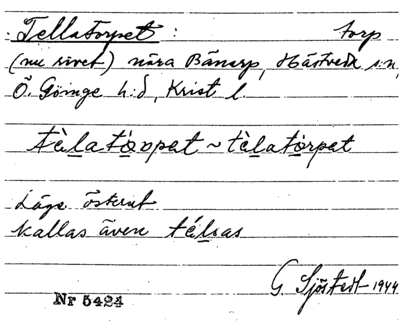 : Tellatorpet : torp
(nu rivet) nära Bänarp, Hästveda s:n,
Ö. Göinge h:d, Krist l.
tèlatórpat ~ tèlatórpet
Läge österut
Kallas även télsas
G. Sjöstedt 1944
Nr 5424